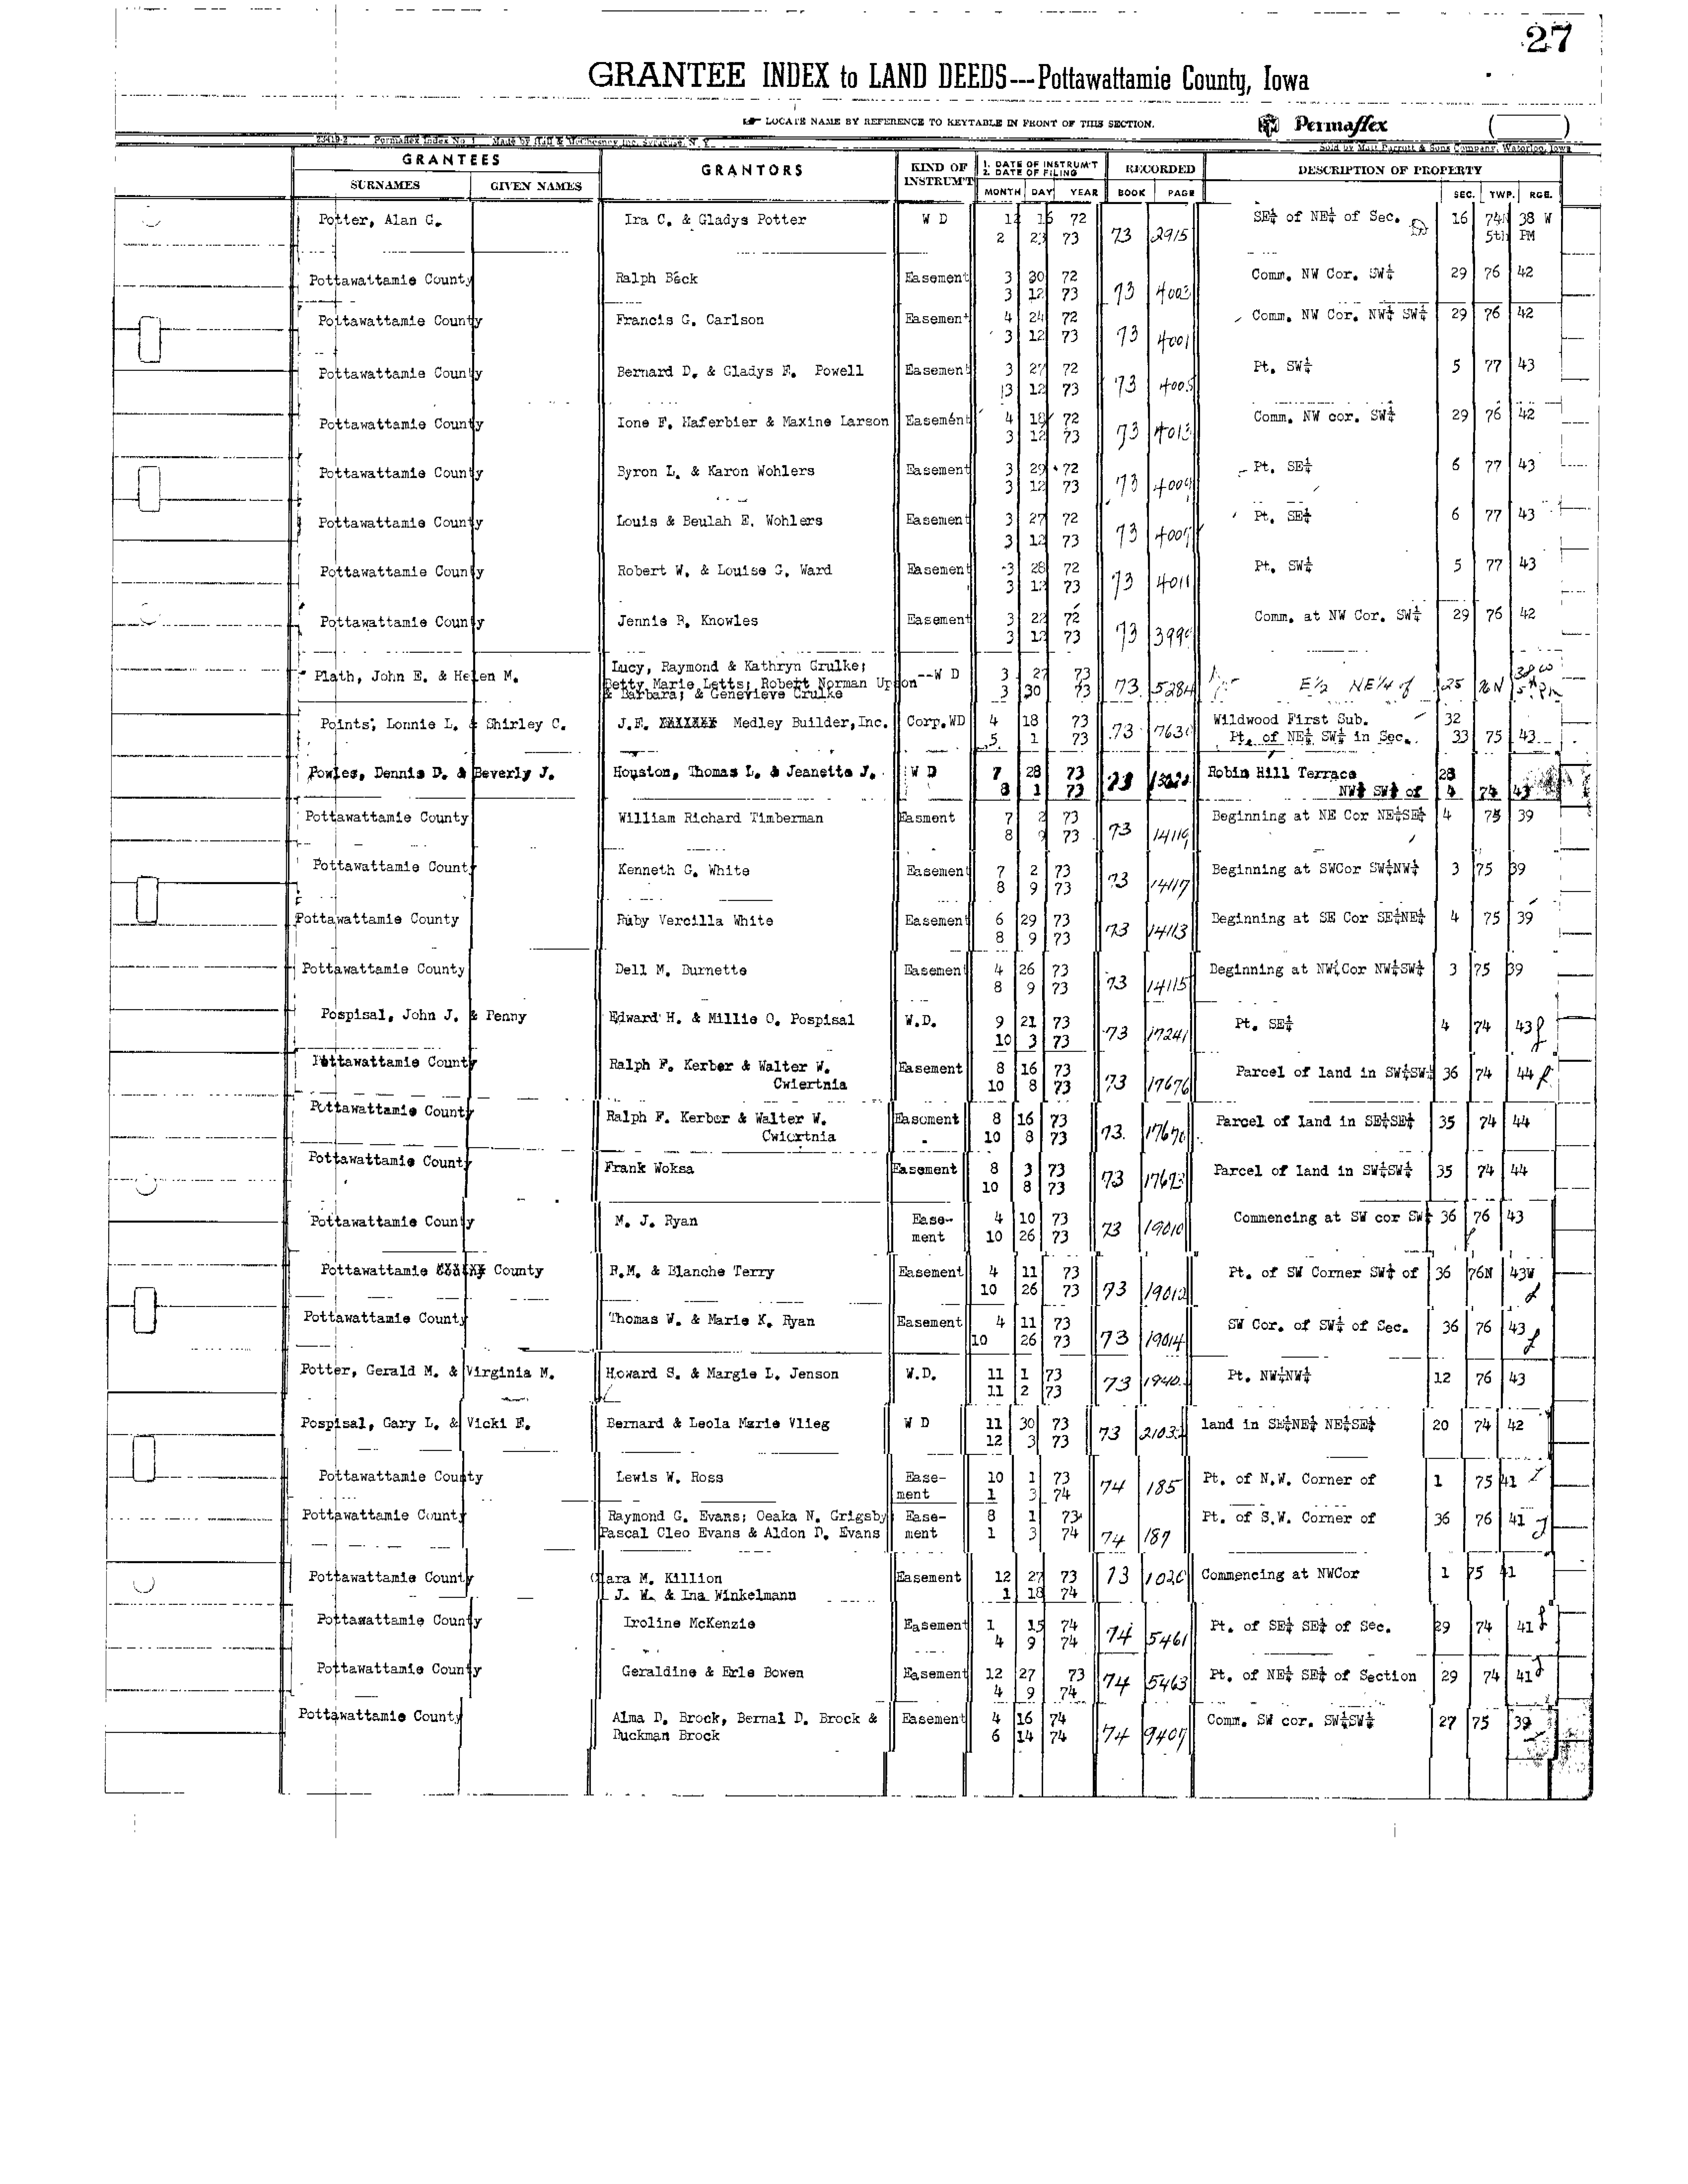 27
GRANTEE INDEX to LAND DEEDS---Pottawattamie County, Iowa
LOCATE NAME BY REFERENCE TO KEYTABLE IN FRONT OF THIS SECTION.
Permaflex
Sold by Matt Parrott & Sons Company, Waterloo, Iowa
GRANTEES GRANTORS KIND OF INSTRUM'T 1. DATE OF INSTRUM'T 2. DATE OF FILING RECORDED DESCRIPTION OF PROPERTY
SURNAMES GIVEN NAMES MONTH DAY YEAR BOOK PAGE SEC. TWP. RGE.
Potter, Alan G. Ira C. & Gladys Potter W D 16 72 SE¼ of NE¼ of Sec. 16 74N 38 W
2 23 73 73 2915 5th PM
Pottawattamie County Ralph Beck Easement 3 30 72 Comm. NW Cor. SW¼ 29 76 42
3 12 73 73 4003
Pottawattamie County Francis G. Carlson Easement 4 24 72 Comm. NW Cor. NW¼ SW¼ 29 76 42
3 12 73 73 4001
Pottawattamie County Bernard D. & Gladys F. Powell Easement 3 27 72 Pt. SW¼ 5 77 43
3 12 73 73 4005
Pottawattamie County Ione F. Haferbier & Maxine Larson Easement 4 18 72 Comm. NW cor. SW¼ 29 76 42
3 12 73 73 4013
Pottawattamie County Byron L. & Karon Wohlers Easement 3 29 72 Pt. SE¼ 6 77 43
3 12 73 73 4009
Pottawattamie County Louis & Beulah E. Wohlers Easement 3 27 72 Pt. SE¼ 6 77 43
3 12 73 73 4007
Pottawattamie County Robert W. & Louise G. Ward Easement 3 28 72 Pt. SW¼ 5 77 43
3 12 73 73 4011
Pottawattamie County Jennie R. Knowles Easement 3 22 72 Comm. at NW Cor. SW¼ 29 76 42
3 12 73 73 3999
Lucy, Raymond & Kathryn Grulke;
Plath, John E. & Helen M. Betty Marie Letts; Robert Norman Upton W D 3 27 73 E½ NE¼ of 25 76N 38W
& Barbara; & Genevieve Grulke 3 30 73 73 5284 5th PM
Points, Lonnie L. & Shirley C. J.F. Medley Builder, Inc. Corp.WD 4 18 73 Wildwood First Sub. 32
5 1 73 73 7630 Pt. of NE¼ SW¼ in Sec. 33 75 43
Powles, Dennis D. & Beverly J. Houston, Thomas L. & Jeanette J. W D 7 28 73 Robin Hill Terrace 28
8 1 73 73 NW¼ SW¼ of 4 74 43
Pottawattamie County William Richard Timberman Easment 7 2 73 Beginning at NE Cor NE¼SE¼ 4 75 39
8 9 73 73 14119
Pottawattamie County Kenneth G. White Easement 7 2 73 Beginning at SWCor SW¼NW¼ 3 75 39
8 9 73 73 14117
Pottawattamie County Ruby Vercilla White Easement 6 29 73 Beginning at SE Cor SE¼NE¼ 4 75 39
8 9 73 73 14113
Pottawattamie County Dell M. Burnette Easement 4 26 73 Beginning at NW¼Cor NW¼SW¼ 3 75 39
8 9 73 73 14115
Pospisal, John J. & Penny Edward H. & Millie O. Pospisal W.D. 9 21 73 Pt. SE¼ 4 74 43
10 3 73 73 17241
Pottawattamie County Ralph F. Kerber & Walter W. Easement 8 16 73 Parcel of land in SW¼SW¼ 36 74 44
Cwiertnia 10 8 73 73 17676
Pottawattamie County Ralph F. Kerber & Walter W. Easement 8 16 73 Parcel of land in SE¼SE¼ 35 74 44
Cwiertnia 10 8 73 73. 17670
Pottawattamie County Frank Woksa Easement 8 3 73 Parcel of land in SW¼SW¼ 35 74 44
10 8 73 73 17673
Pottawattamie County M. J. Ryan Ease- 4 10 73 Commencing at SW cor SW¼ 36 76 43
ment 10 26 73 73 19010
Pottawattamie County R.M. & Blanche Terry Easement 4 11 73 Pt. of SW Corner SW¼ of 36 76N 43W
10 26 73 73 19012
Pottawattamie County Thomas W. & Marie K. Ryan Easement 4 11 73 SW Cor. of SW¼ of Sec. 36 76 43
10 26 73 73 19014
Potter, Gerald M. & Virginia M. Howard S. & Margie L. Jenson W.D. 11 1 73 Pt. NW¼NW¼ 12 76 43
11 2 73 73
Pospisal, Gary L. & Vicki E. Bernard & Leola Marie Vlieg W D 11 30 73 land in SE¼NE¼ NE¼SE¼ 20 74 42
12 3 73 73 21032
Pottawattamie County Lewis W. Ross Ease- 10 1 73 Pt. of N.W. Corner of 1 75 41
ment 1 3 74 74 185
Pottawattamie County Raymond G. Evans; Oeaka N. Grigsby Ease- 8 1 73 Pt. of S.W. Corner of 36 76 41
Pascal Cleo Evans & Aldon D. Evans ment 1 3 74 74 187
Pottawattamie County Clara M. Killion Easement 12 27 73 73 1020 Commencing at NWCor 1 75 41
J. W. & Ina Winkelmann 1 18 74
Pottawattamie County Iroline McKenzie Easement 1 15 74 Pt. of SE¼ SE¼ of Sec. 29 74 41
4 9 74 74 5461
Pottawattamie County Geraldine & Erle Bowen Easement 12 27 73 Pt. of NE¼ SE¼ of Section 29 74 41
4 9 74 74 5463
Pottawattamie County Alma D. Brock, Bernal D. Brock & Easement 4 16 74 Comm. SW cor. SW¼SW¼ 27 75 39
Buckman Brock 6 14 74 74 9407